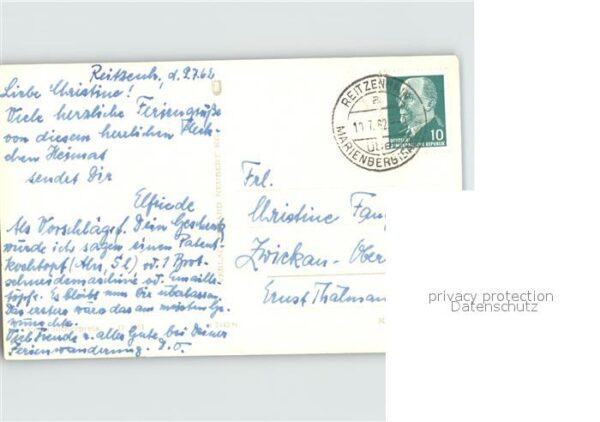 Reitzenh., d. 9.7.62
Liebe Christine!
Viele herzliche Feriengrüße
von diesem herrlichen Fleck-
chen Heimat
sendet Dir
Elfriede
Als Vorschlag f. Dein Geschenk
würde ich sagen einen Patent
kochtopf (Alu, 5 l) od. 1 Brot
schneidemaschine od. emaille
töpfe. Es bleibt nun Dir überlassen.
Das erstere wäre das am meisten Ge-
wünschte.
Viel Freude u. alles Gute bei Deiner
Ferienwanderung. D. O.
REITZENHAIN
a
10.7.62
über
MARIENBERG
10
DEUTSCHE
DEMOKRATISCHE REPUBLIK
Frl.
Christine
Zwickau-Ober
Ernst Thälman
privacy protection
Datenschutz